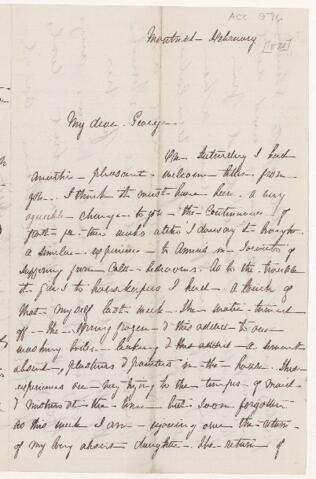 Acc 974
Montreal - February
My dear George
On Saturday I had
another - pleasant - welcome letter from
you. I think it must have been a very
agreeable - change to you - the continuance of
a similar - experience - to
suffering from Cold - As to the trouble
it gives to housekeepers I had - a touch of
that - myself last week. The water turned
off - the - frozen - & this added to our
washing boiler - leaking & this added - a servant
absent, plasterers & painters - in the house. These
experiences are very trying to the tempers of maids
& mothers at - the - time - but soon forgotten
as this week I am - enjoying once - the return -
of my long absent daughter. The return of